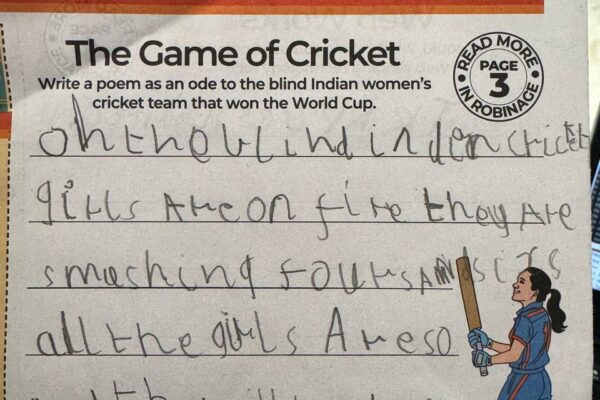 The Game of Cricket
Write a poem as an ode to the blind Indian women's
cricket team that won the World Cup.
READ MORE
PAGE
3
IN ROBINAGE
oh the blind inden cricket
girls Are on fire they Are
smashing fours And sixs
all the girls Are so